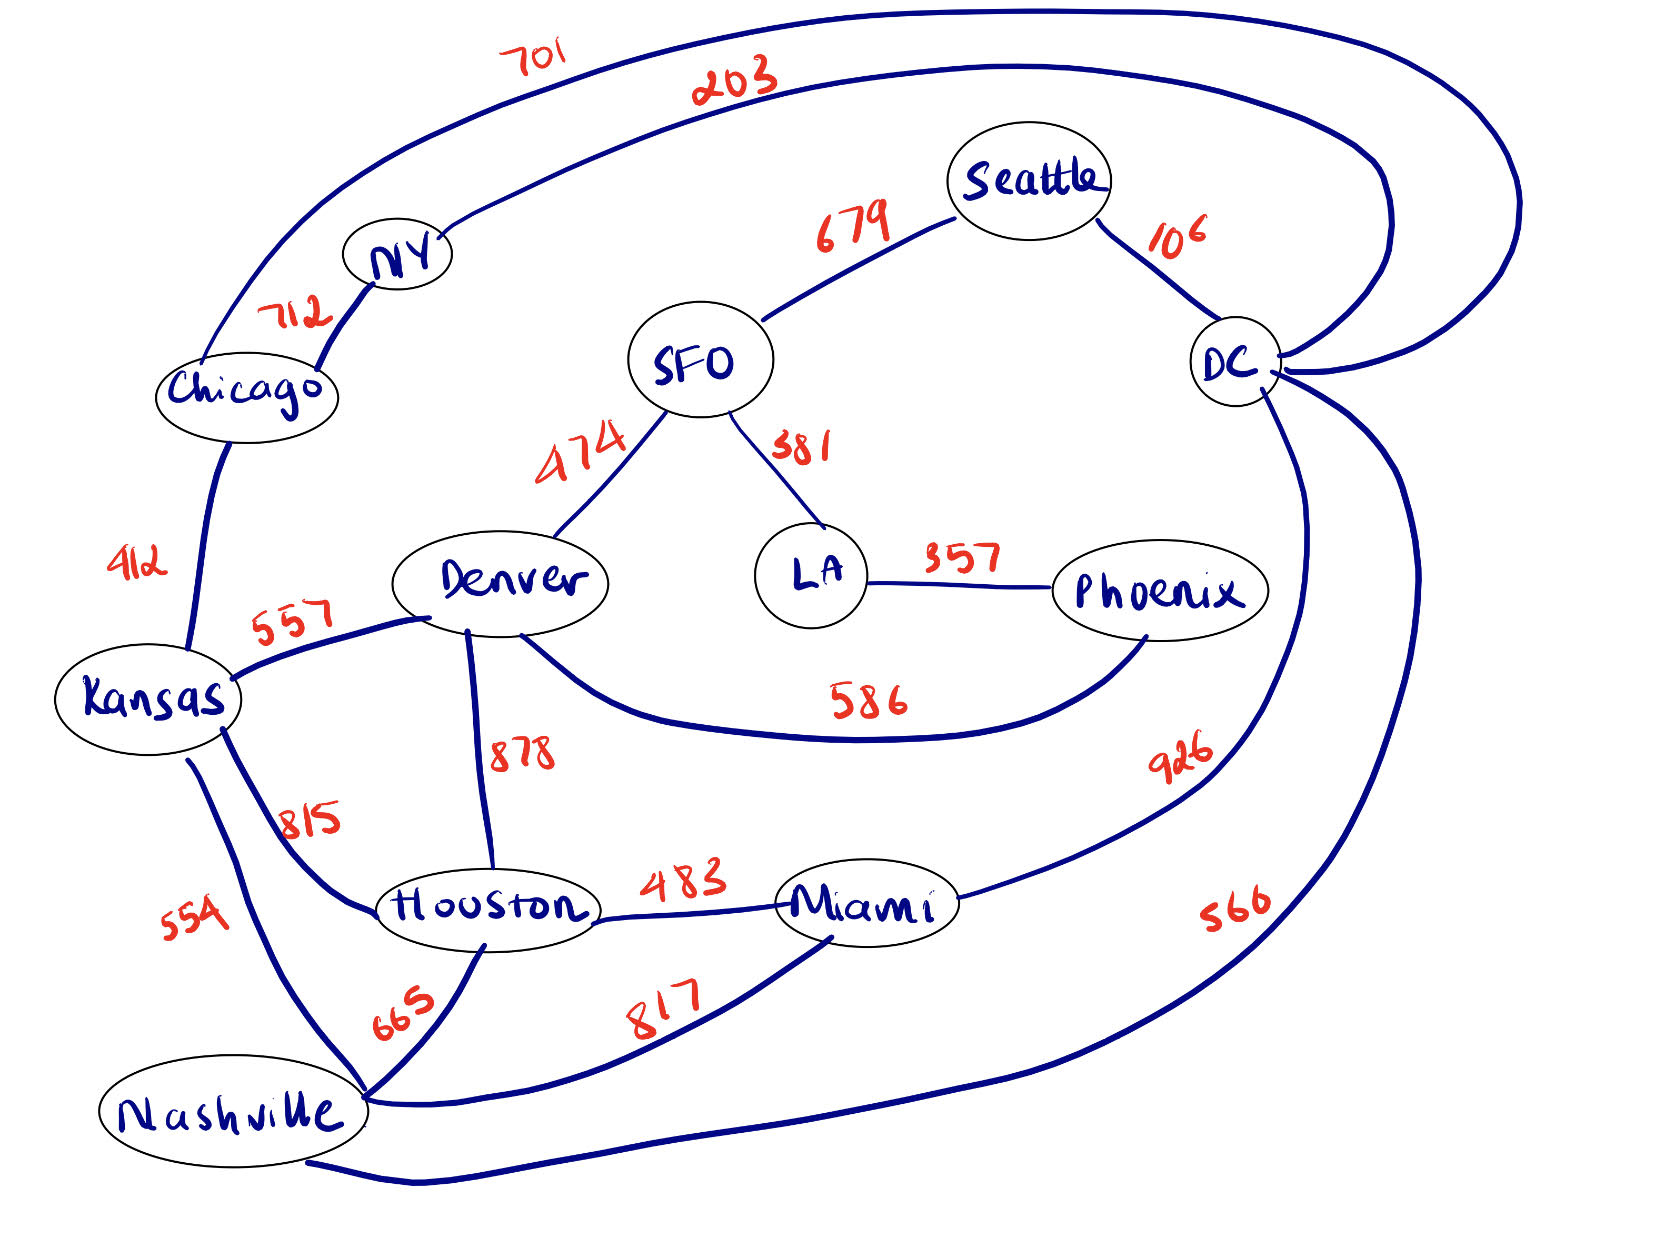 701
203
Seattle
679
106
NY
712
SFO
DC
Chicago
474
381
412
557
Denver
LA
357
Phoenix
Kansas
586
878
926
815
554
Houston
483
Miami
566
665
817
Nashville